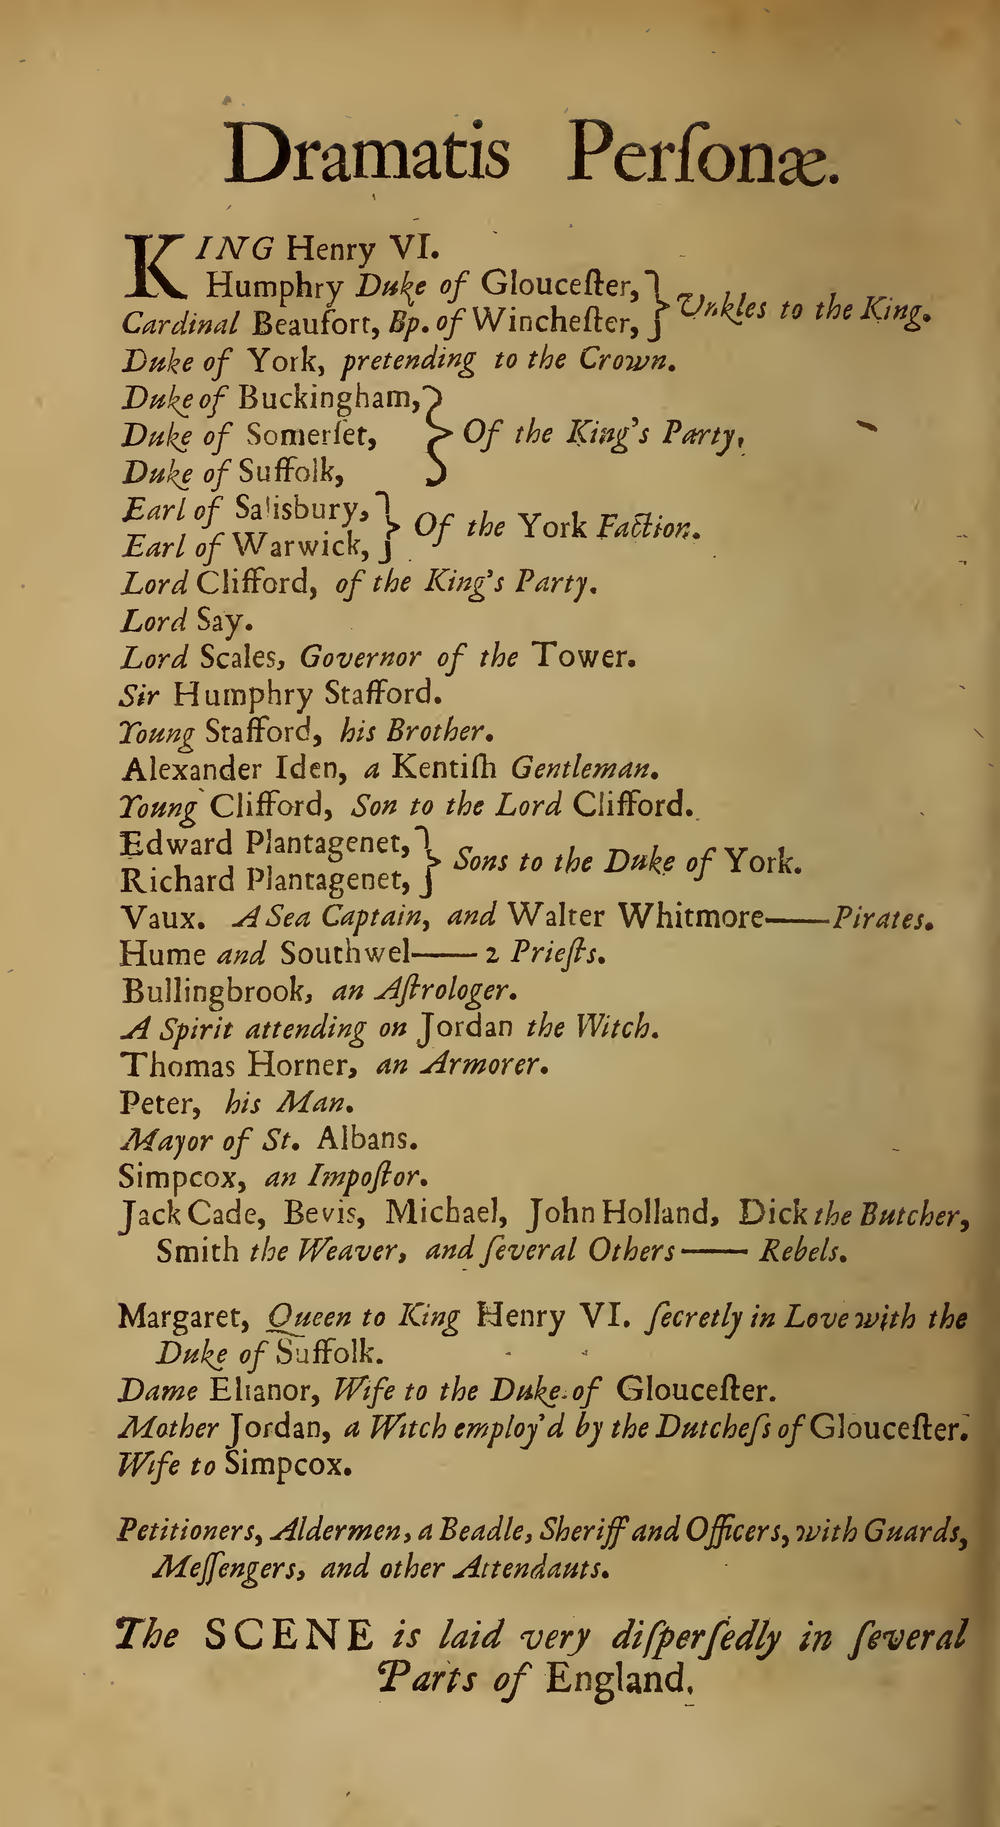 Dramatis Perſonæ.
KING Henry VI.
Humphry Duke of Glouceſter, } Unkles to the King.
Cardinal Beaufort, Bp. of Wincheſter,
Duke of York, pretending to the Crown.
Duke of Buckingham,
Duke of Somerſet, } Of the King's Party,
Duke of Suffolk,
Earl of Salisbury, } Of the York Faction.
Earl of Warwick,
Lord Clifford, of the King's Party.
Lord Say.
Lord Scales, Governor of the Tower.
Sir Humphry Stafford.
Young Stafford, his Brother.
Alexander Iden, a Kentiſh Gentleman.
Young Clifford, Son to the Lord Clifford.
Edward Plantagenet, } Sons to the Duke of York.
Richard Plantagenet,
Vaux. A Sea Captain, and Walter Whitmore——Pirates.
Hume and Southwel—— 2 Prieſts.
Bullingbrook, an Aſtrologer.
A Spirit attending on Jordan the Witch.
Thomas Horner, an Armorer.
Peter, his Man.
Mayor of St. Albans.
Simpcox, an Impoſtor.
Jack Cade, Bevis, Michael, John Holland, Dick the Butcher,
Smith the Weaver, and ſeveral Others—— Rebels.
Margaret, Queen to King Henry VI. ſecretly in Love with the
Duke of Suffolk.
Dame Elianor, Wife to the Duke of Glouceſter.
Mother Jordan, a Witch employ'd by the Dutcheſs of Glouceſter.
Wife to Simpcox.
Petitioners, Aldermen, a Beadle, Sheriff and Officers, with Guards,
Meſſengers, and other Attendauts.
The SCENE is laid very diſperſedly in ſeveral
Parts of England.